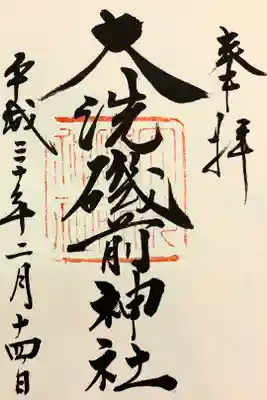 奉拝
大洗磯前神社
平成三十年二月十四日